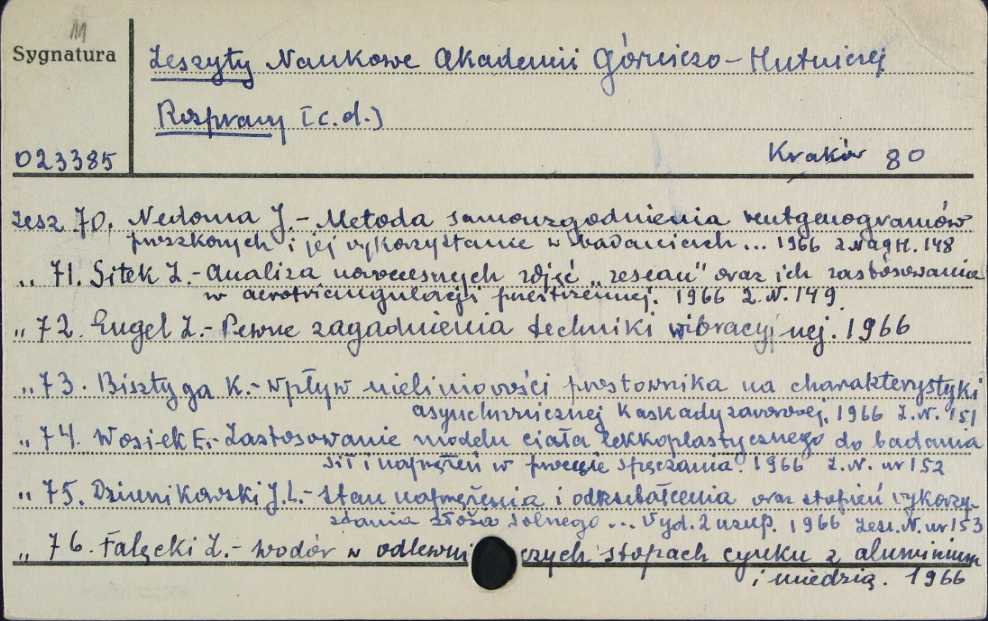 M
Sygnatura
Zeszyty Naukowe Akademii Górniczo-Hutniczej
Rozprawy [c.d.]
023385
Kraków 80
Zesz 70. Nedoma J. - Metoda samouzgodnienia rentgenogramów
proszkowych i jej wykorzystanie w badaniach... 1966 Z.NAGH. 148
„ 71. Sitek Z. - Analiza nowoczesnych zdjęć „reseau" oraz ich zastosowania
w aerotriangulacji przestrzennej. 1966 Z.N. 149
„ 72. Engel Z. - Pewne zagadnienia techniki wibracyjnej. 1966
„ 73. Bisztyga K. - Wpływ nieliniowości prostownika na charakterystyki
asynchronicznej kaskady zaworowej, 1966 Z.N. 151
„ 74. Wosiek E. - Zastosowanie modelu ciała lekkoplastycznego do badania
sił i naprężeń w procesie spęczania. 1966 Z.N. nr 152
„ 75. Dziunikowski J.L. - Stan naprężenia i odkształcenia oraz stopień wykorzy-
stania złoża solnego... Wyd. 2 uzup. 1966 Zesz. N. nr 153
„ 76. Falęcki Z. - Wodór w odlewniczych stopach cynku z aluminium
i miedzią. 1966